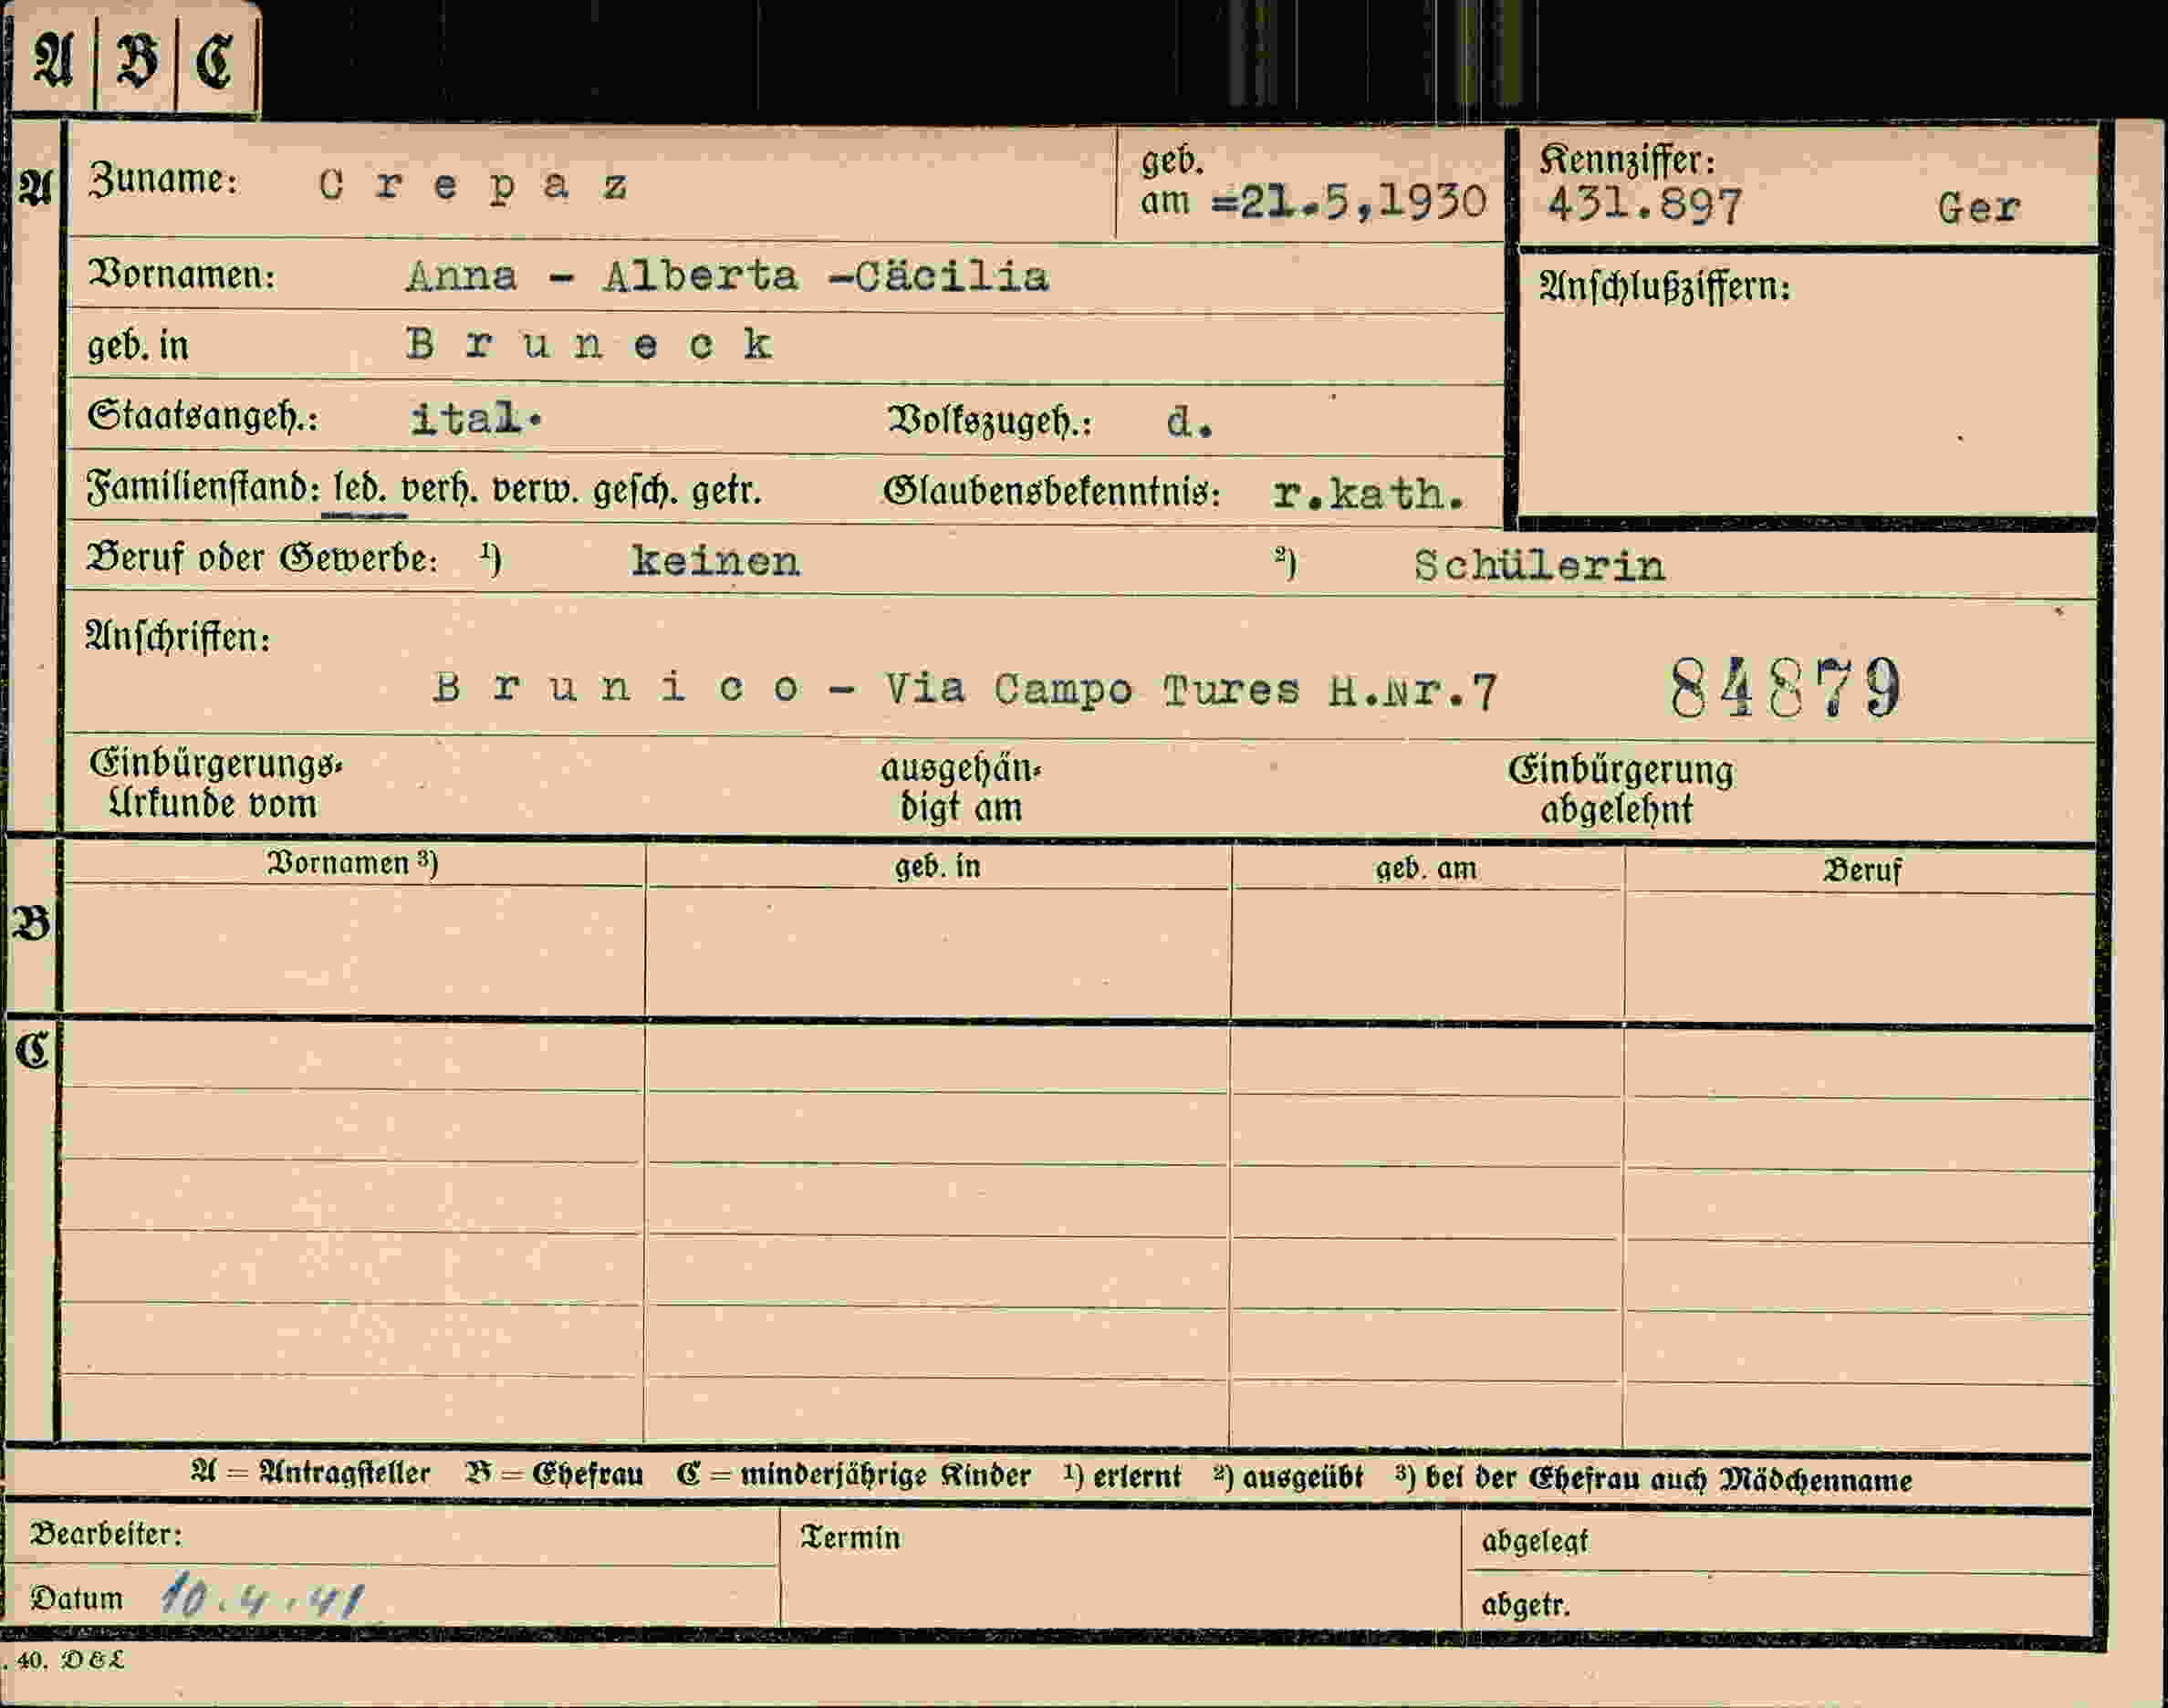 A B C
A Zuname: Crepaz geb. am =21.5,1930 Kennziffer: 431.897 Ger
Vornamen: Anna - Alberta -Cäcilia Anschlußziffern:
geb. in Bruneck
Staatsangeh.: ital. Volkszugeh.: d.
Familienstand: led. verh. verw. gesch. getr. Glaubensbekenntnis: r.kath.
Beruf oder Gewerbe: ¹) keinen ²) Schülerin
Anschriften:
Brunico - Via Campo Tures H.Nr.7 84879
Einbürgerungs- Urkunde vom ausgehän- digt am Einbürgerung abgelehnt
Vornamen ³) geb. in geb. am Beruf
B
C
A = Antragsteller B = Ehefrau C = minderjährige Kinder ¹) erlernt ²) ausgeübt ³) bei der Ehefrau auch Mädchenname
Bearbeiter: Termin abgelegt
Datum 10.4.41 abgetr.
. 40. D & L